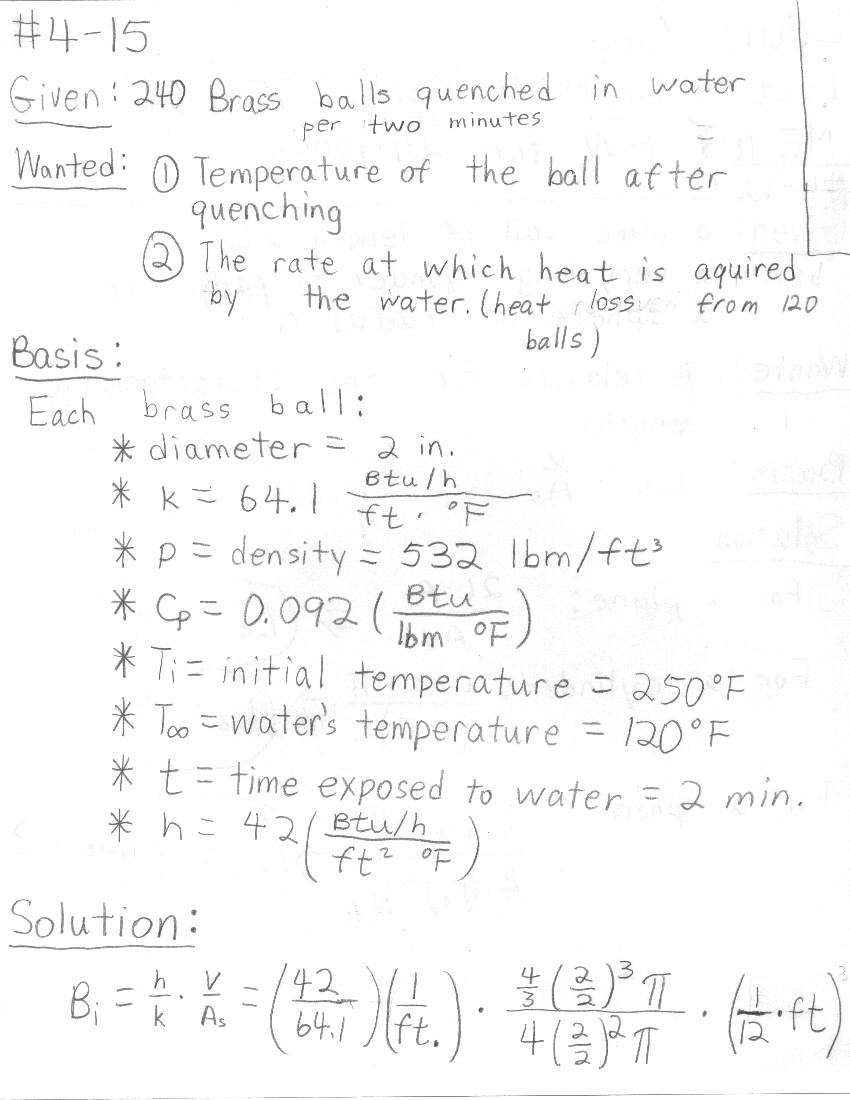 #4-15
Given: 240 Brass balls quenched in water
per two minutes
Wanted: ① Temperature of the ball after
quenching
② The rate at which heat is aquired
by the water. (heat loss from 120
balls)
Basis:
Each brass ball:
* diameter = 2 in.
* k = 64.1 (Btu/h)/(ft · °F)
* ρ = density = 532 lbm/ft³
* Cp = 0.092 (Btu/(lbm °F))
* Ti = initial temperature = 250°F
* T∞ = water's temperature = 120°F
* t = time exposed to water = 2 min.
* h = 42 ((Btu/h)/(ft² °F))
Solution:
Bi = h/k · V/As = (42/64.1)(1/ft.) · (4/3 (2/2)³ π)/(4 (2/2)² π) · (1/12 · ft)³